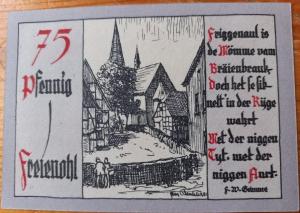 75
Pfennig
Freienohl
Friggenaul is
de Mömme vam
Bräienbrauk,
Doch het se sik
nelt in der Rüge
wahrt
Met der niggen
Tyt, met der
niggen Aart.
F. W. Grimme